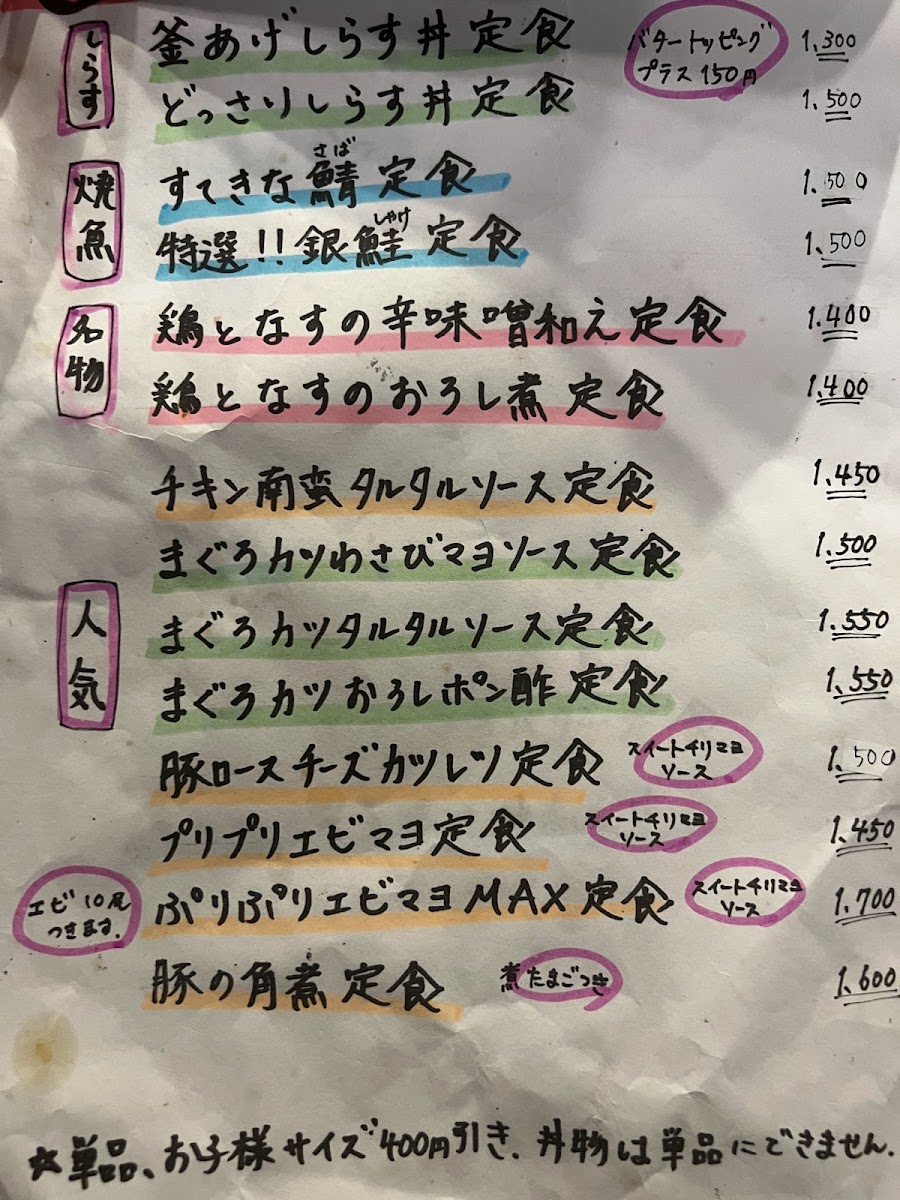 しらす
釜あげしらす丼定食
バタートッピング
プラス150円
1.300
どっさりしらす丼定食
1.500
焼魚
すてきな鯖定食
さば
1.500
特選!!銀鮭定食
しゃけ
1.500
名物
鶏となすの辛味噌和え定食
1.400
鶏となすのおろし煮定食
1.400
チキン南蛮タルタルソース定食
1.450
まぐろカツわさびマヨソース定食
1.500
人気
まぐろカツタルタルソース定食
1.550
まぐろカツおろしポン酢定食
1.550
豚ロースチーズカツレツ定食
スイートチリマヨ
ソース
1.500
プリプリエビマヨ定食
スイートチリマヨ
ソース
1.450
エビ10尾
つきます.
ぷりぷりエビマヨMAX定食
スイートチリマヨ
ソース
1.700
豚の角煮定食
煮たまごつき
1.600
☆単品、お子様サイズ400円引き.丼物は単品にできません.